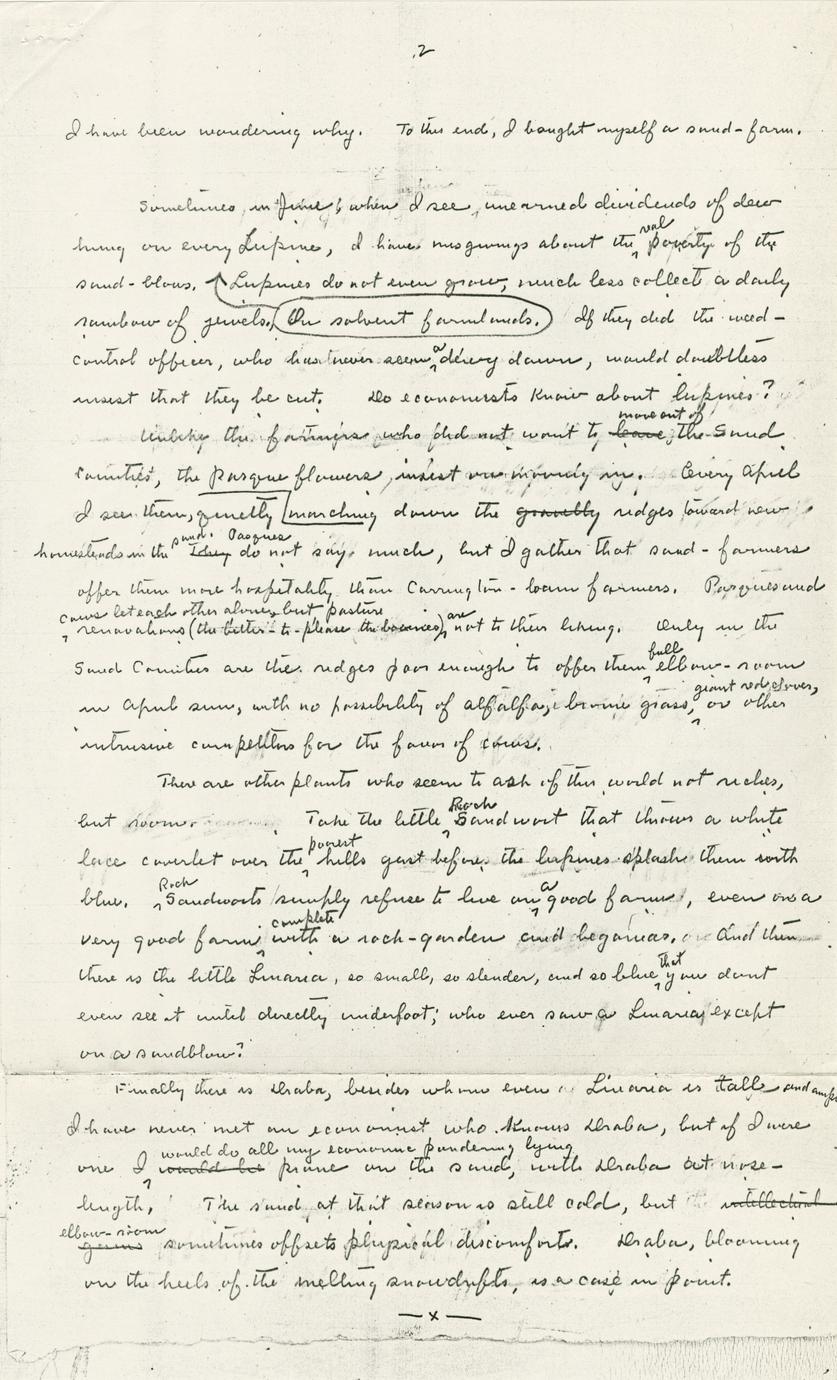 2
I have been wondering why. To this end, I bought myself a sand-farm.
Sometimes, in June, when I see unearned dividends of dew
hung on every Lupine, I have misgivings about the real poverty of the
sand-blows. Lupines do not even grow, much less collect a daily
rainbow of jewels. On solvent farmlands. If they did the weed-
control officer, who has never seen a dewy dawn, would doubtless
insist that they be cut. Do economists know about lupines?
Unlike the farmers who did not want to leave move out of the Sand
Counties, the pasque flowers insist on moving in. Every April
I see them, quietly marching down the gravelly ridges toward new
homesteads in the sand. They Pasques do not say much, but I gather that sand-farmers
offer them more hospitality than Carrington-loam farmers. Pasques and
cows let each other alone, but pasture
renovations (the better-to-please the bovines) are not to their liking. Only in the
Sand Counties are the ridges poor enough to offer them full elbow-room
in April sun, with no possibility of alfalfa, brome grass, giant red clover, or other
intrusive competitors for the favor of cows.
There are other plants who seem to ask of this world not riches,
but room. Take the little Rock Sandwort that throws a white
lace coverlet over the poorest hills just before the lupines splash them with
blue. Rock Sandworts simply refuse to live on a good farm, even on a
very good farm complete with a rock-garden and begonias. And then
there is the little Linaria, so small, so slender, and so blue that you dont
even see it until directly underfoot; who ever saw a Linaria except
on a sandblow?
Finally there is Draba, besides whom even Linaria is tall and
I have never met an economist who knows Draba, but if I were
one I would be would do all my economic pondering lying prone on the sand, with Draba at nose-
length. The sand at that season is still cold, but intellectual
gains elbow-room sometimes offsets physical discomforts. Draba, blooming
on the heels of the melting snowdrifts, is a case in point.
—x—